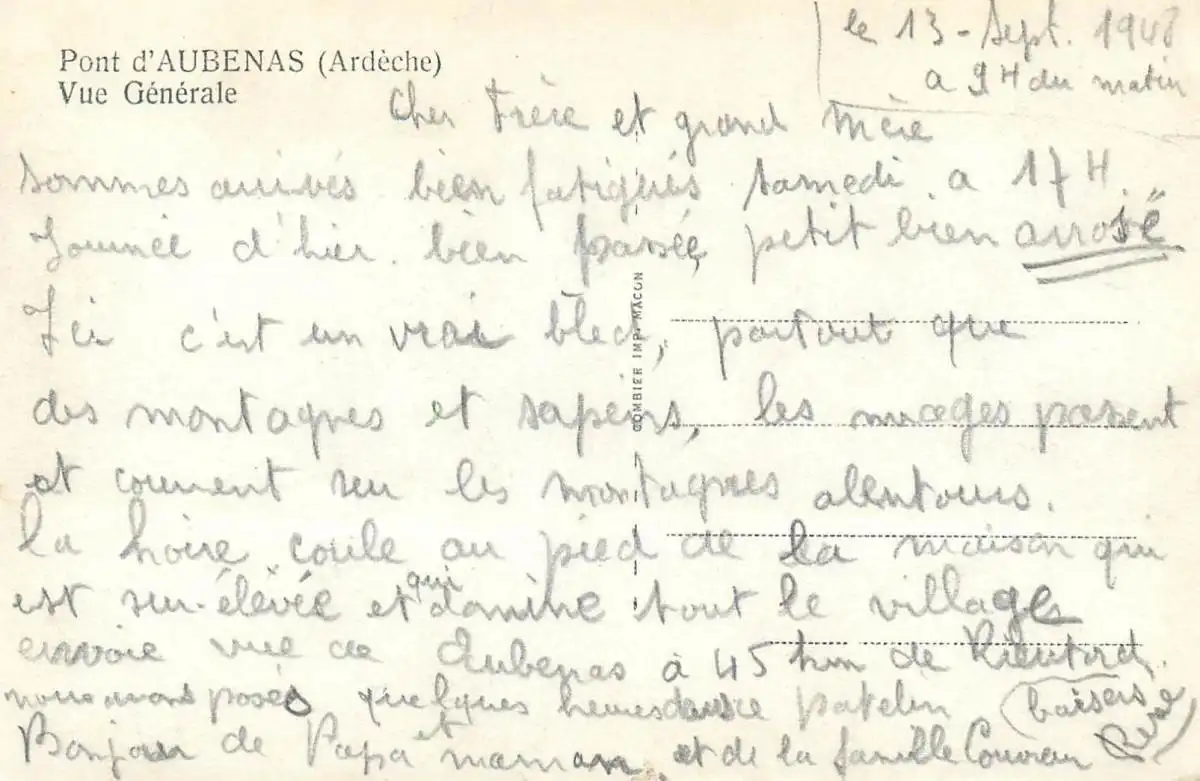 Pont d'AUBENAS (Ardèche)
Vue Générale
le 13 - Sept. 1948
a 9H du matin
Cher Frère et grand Mère
sommes arrivés bien fatigués samedi a 17H.
Journée d'hier bien passée, petit bien arrosé
Ici c'est un vrai bled, partout que
des montagnes et sapins, les nuages passent
et courrent sur les montagnes alentours.
la Loire coule au pied de la maison qui
est sur-élevée et qui domine tout le village
envoie vue de Aubenas à 45 km de Rieutord.
nous avons posés quelques heures dans ce patelin
baisers
Bonjour de Papa et maman et de la famille Couvreur
COMBIER IMP. MACON